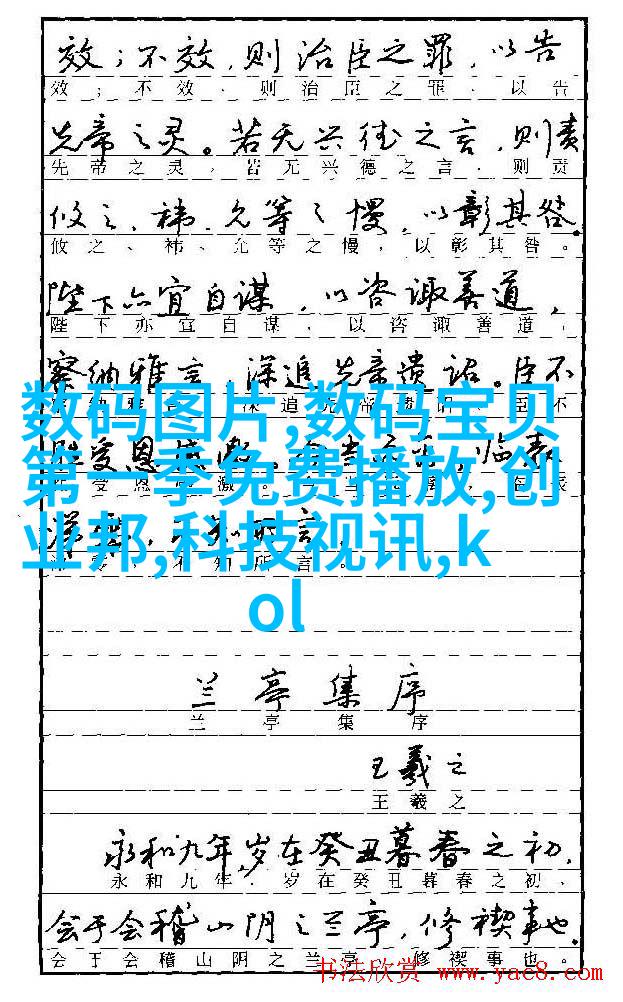 效；不效，则治臣之罪，以告
效；不效、则治臣之罪、以告
先帝之灵。若无兴德之言，则责
先帝之灵，若无兴德之言、则责
攸之、祎、允等之慢，以彰其咎。
攸之、祎、允等之慢，以彰其咎。
陛下亦宜自谋，以咨诹善道，
陛下亦宜自谋，以咨诹善道，
察纳雅言，深追先帝遗诏。臣不
数码图片,数码宝贝
受恩 临表
第一季免费播放,创
业邦,科技视讯,k
不知所言。
ol
兰亭集序
兰亭集序
王羲之
王羲之
永和九年，岁在癸丑暮春之初，
永和九年，岁在癸丑暮春之初、
会于会稽山阴之兰亭，修禊事也。
会于会稽山阴之兰亭，修禊事也。
书法欣赏 www.yac8.com